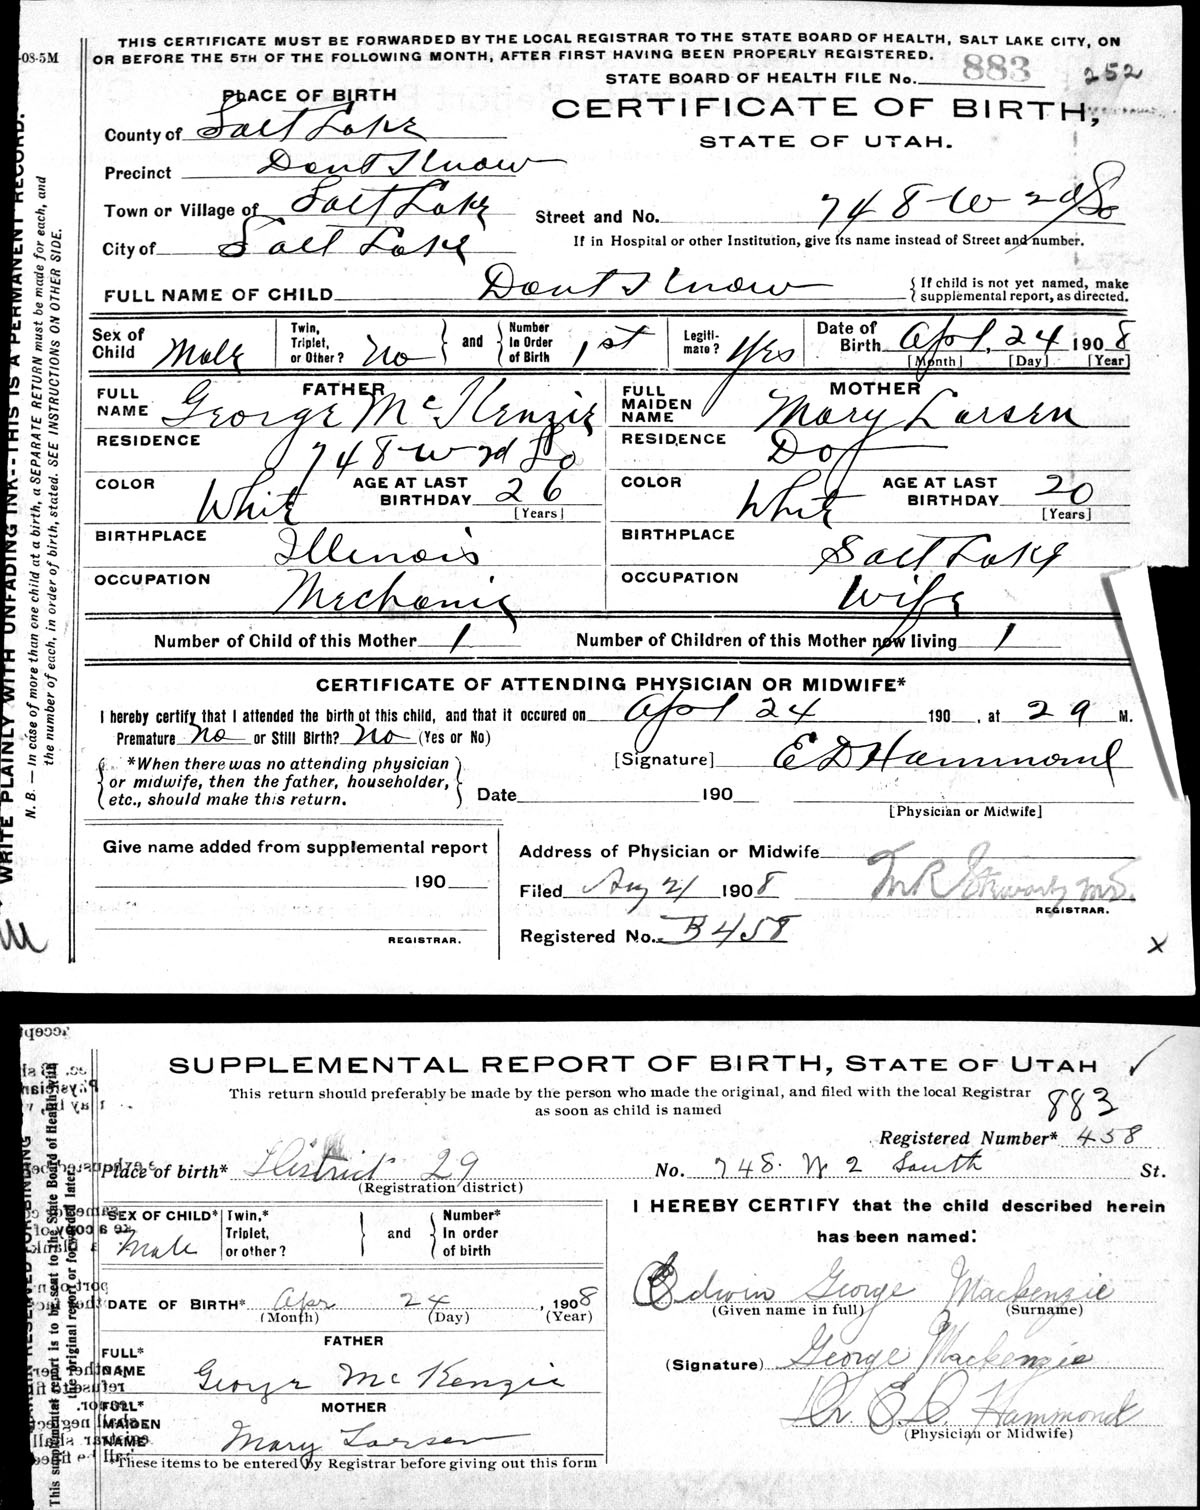 THIS CERTIFICATE MUST BE FORWARDED BY THE LOCAL REGISTRAR TO THE STATE BOARD OF HEALTH, SALT LAKE CITY, ON
OR BEFORE THE 5TH OF THE FOLLOWING MONTH, AFTER FIRST HAVING BEEN PROPERLY REGISTERED.
-08-5M
STATE BOARD OF HEALTH FILE No. 883 252
PLACE OF BIRTH
CERTIFICATE OF BIRTH,
STATE OF UTAH.
County of Salt Lake
Precinct Dont Know
Town or Village of Salt Lake
Street and No. 748-W 2d So
City of Salt Lake
If in Hospital or other Institution, give its name instead of Street and number.
FULL NAME OF CHILD Dont Know
If child is not yet named, make supplemental report, as directed.
Sex of Child Male
Twin, Triplet, or Other? No
and
Number In Order of Birth 1st
Legitimate? Yes
Date of Birth Apl, 24 1908
[Month] [Day] [Year]
FATHER
FULL NAME George McKenzie
RESIDENCE 748-W 2d So
COLOR White
AGE AT LAST BIRTHDAY 26
[Years]
BIRTHPLACE Illinois
OCCUPATION Mechanic
MOTHER
FULL MAIDEN NAME Mary Larsen
RESIDENCE Do
COLOR White
AGE AT LAST BIRTHDAY 20
[Years]
BIRTHPLACE Salt Lake
OCCUPATION Wife
Number of Child of this Mother 1
Number of Children of this Mother now living 1
CERTIFICATE OF ATTENDING PHYSICIAN OR MIDWIFE*
I hereby certify that I attended the birth of this child, and that it occured on Apl 24 190 , at 2 9 M.
Premature No or Still Birth? No (Yes or No)
[Signature] E D Hammond
*When there was no attending physician
or midwife, then the father, householder,
etc., should make this return.
Date 190
[Physician or Midwife]
Give name added from supplemental report
190
REGISTRAR.
Address of Physician or Midwife
Filed Aug 21 1908
REGISTRAR.
Registered No. B458
x
WRITE PLAINLY WITH UNFADING INK--THIS IS A PERMANENT RECORD.
N. B. — In case of more than one child at a birth, a SEPARATE RETURN must be made for each, and
the number of each, in order of birth, stated. SEE INSTRUCTIONS ON OTHER SIDE.
SUPPLEMENTAL REPORT OF BIRTH, STATE OF UTAH
This return should preferably be made by the person who made the original, and filed with the local Registrar
as soon as child is named
883
Registered Number* 458
Place of birth* District 29
(Registration district)
No. 748. W 2 South St.
SEX OF CHILD* Male
Twin,* Triplet, or other?
and
Number* In order of birth
DATE OF BIRTH* Apr 24, 1908
(Month) (Day) (Year)
FATHER
FULL* NAME George McKenzie
MOTHER
FULL* MAIDEN NAME Mary Larsen
*These items to be entered by Registrar before giving out this form
I HEREBY CERTIFY that the child described herein
has been named:
Edwin George Mackenzie
(Given name in full) (Surname)
(Signature) George Mackenzie
Dr E. D. Hammond
(Physician or Midwife)
This supplemental report is to be sent to the State Board of Health with
the original report or forwarded later.